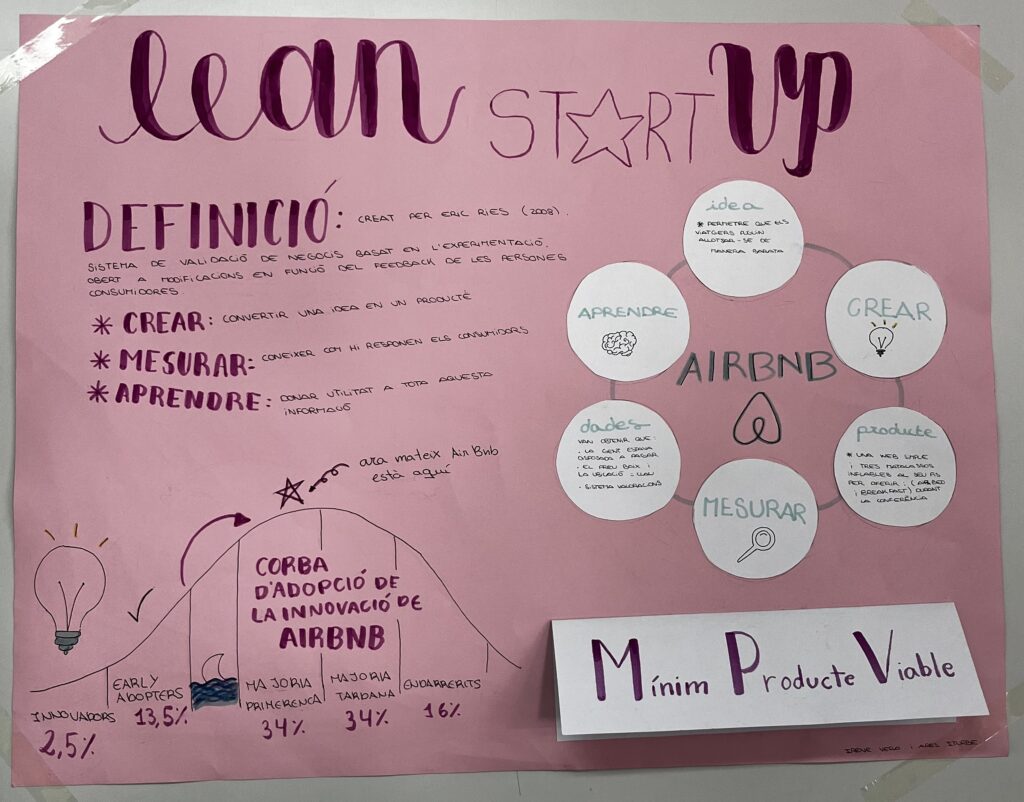 lean START UP
DEFINICIÓ: CREAT PER ERIC RIES (2008).
SISTEMA DE VALIDACIÓ DE NEGOCIS BASAT EN L'EXPERIMENTACIÓ,
OBERT A MODIFICACIONS EN FUNCIÓ DEL FEEDBACK DE LES PERSONES
CONSUMIDORES
* CREAR: CONVERTIR UNA IDEA EN UN PRODUCTE
* MESURAR: CONEIXER COM HI RESPONEN ELS CONSUMIDORS
* APRENDRE: DONAR UTILITAT A TOTA AQUESTA
INFORMACIÓ
idea
* PERMETRE QUE ELS
VIATGERS PUGUIN
ALLOTJAR-SE DE
MANERA BARATA
CREAR
producte
* UNA WEB SIMPLE
I TRES MATALASSOS
INFLABLES AL SEU PIS
PER OFERIR: (AIRBED
I BREAKFAST) DURANT
LA CONFERÈNCIA
MESURAR
dades
VAN OBTENIR QUE:
- LA GENT ESTAVA
DISPOSADA A PAGAR
- EL PREU BAIX I
LA UBICACIÓ = CLAU
- SISTEMA VALORACIONS
APRENDRE
AIRBNB
ara mateix AirBnb
està aquí
CORBA
D'ADOPCIÓ DE
LA INNOVACIÓ DE
AIRBNB
INNOVADORS
2,5%
EARLY
ADOPTERS
13,5%
MAJORIA
PRIMERENCA
34%
MAJORIA
TARDANA
34%
ENDARRERITS
16%
Mínim Producte Viable
IRENE VERO I ARES ITURBE